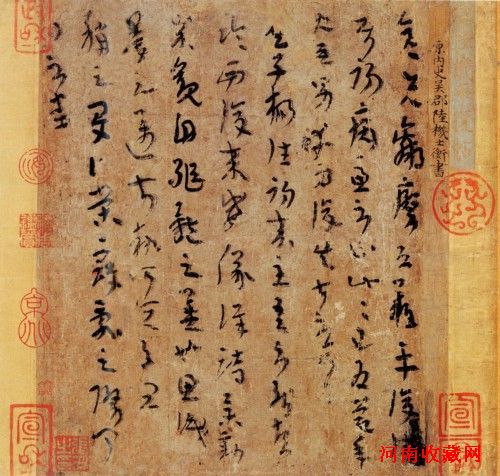 原内史吳郡陸機士衡書
彦先羸瘵恐難平復往屬
初病慮不止此此已為慶承
使男幸為復失前憂耳
吳子楊往初來主吾不能盡
臨西復來威儀詳跱舉動
成觀自軀體之美也思識
量之邁前執所恆有宜
稱之夏伯榮寇亂之際聞
問不悉
河南收藏网